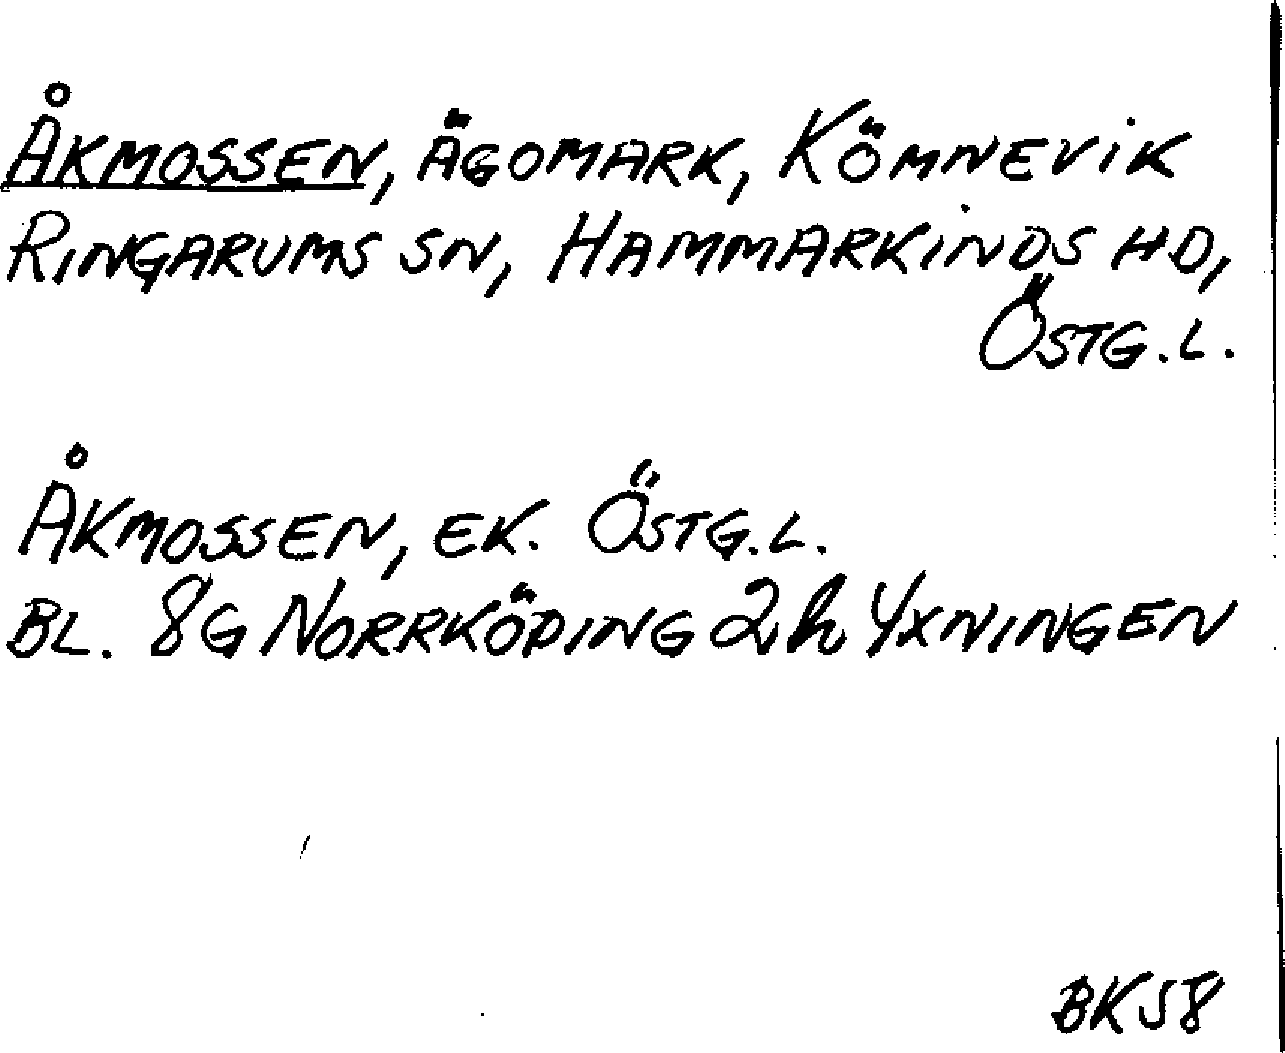 ÅKMOSSEN, ÄGOMARK, KÖMNEVIK
RINGARUMS SN, HAMMARKINDS HD,
ÖSTG.L.
ÅKMOSSEN, EK. ÖSTG.L.
BL. 8G NORRKÖPING 2h YXNINGEN
BK58